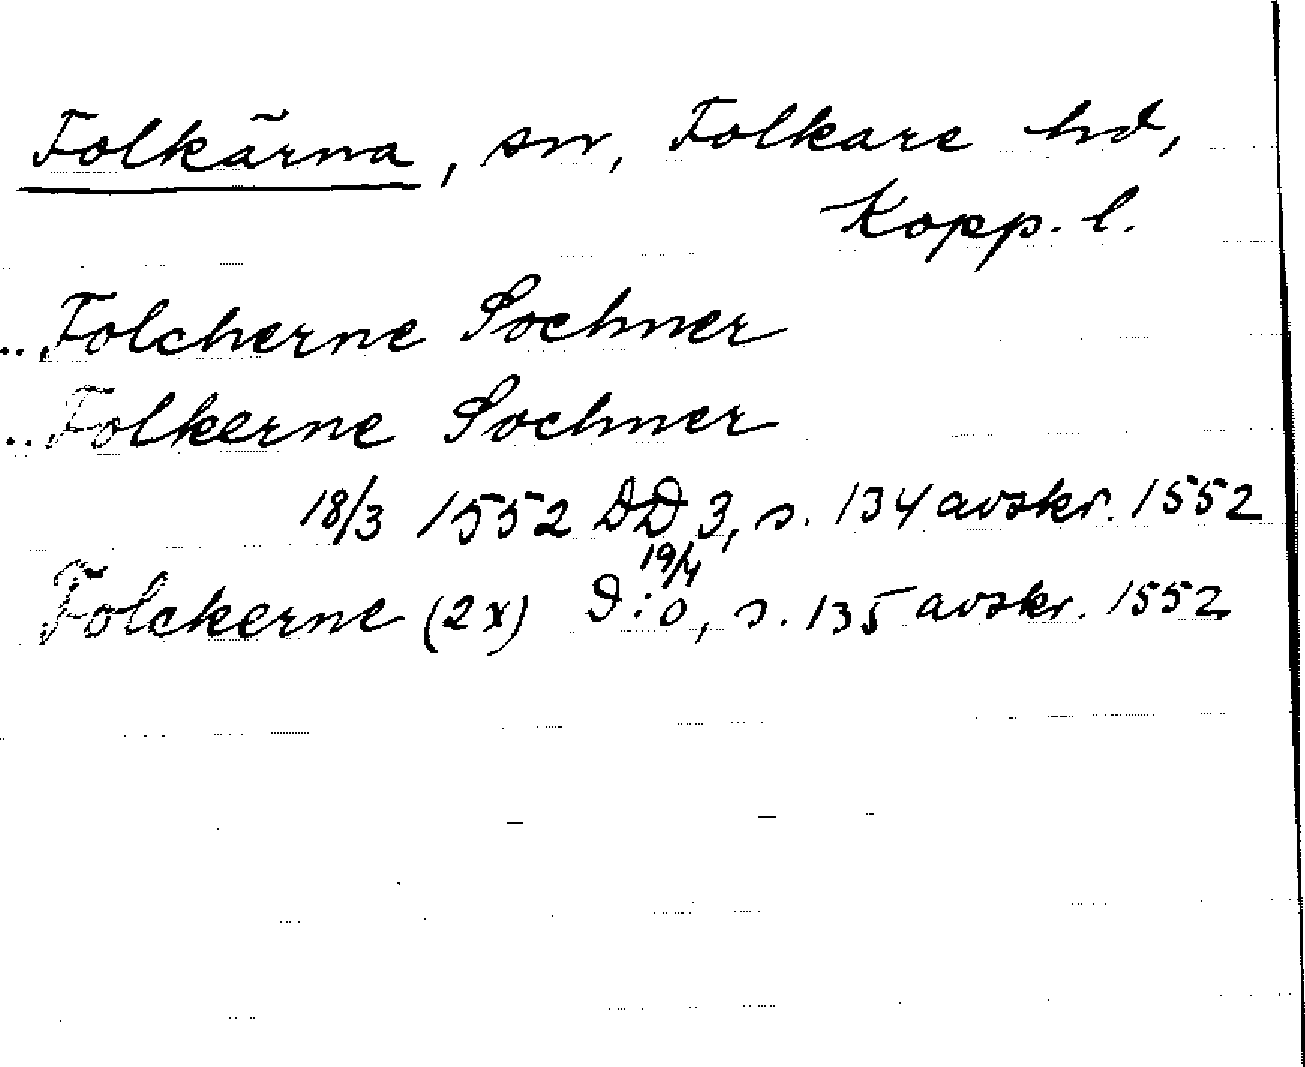 Folkärna, sn, Folkare hd,
Kopp. l.
.. Folcherne Sochner
.. Folkerne Sochner
18/3 1552 DD 3, s. 134 avskr. 1552
Folckerne (2x) D:o, 19/4 s. 135 avskr. 1552